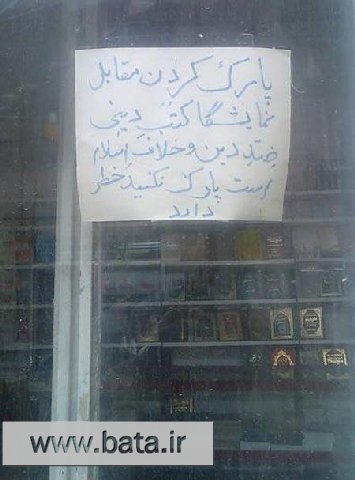 پارک کردن مقابل
نمایشگا کتب دینی
ضد دین و خلاف اسلام
است پارک نکنید خطر
دارد
www.bata.ir